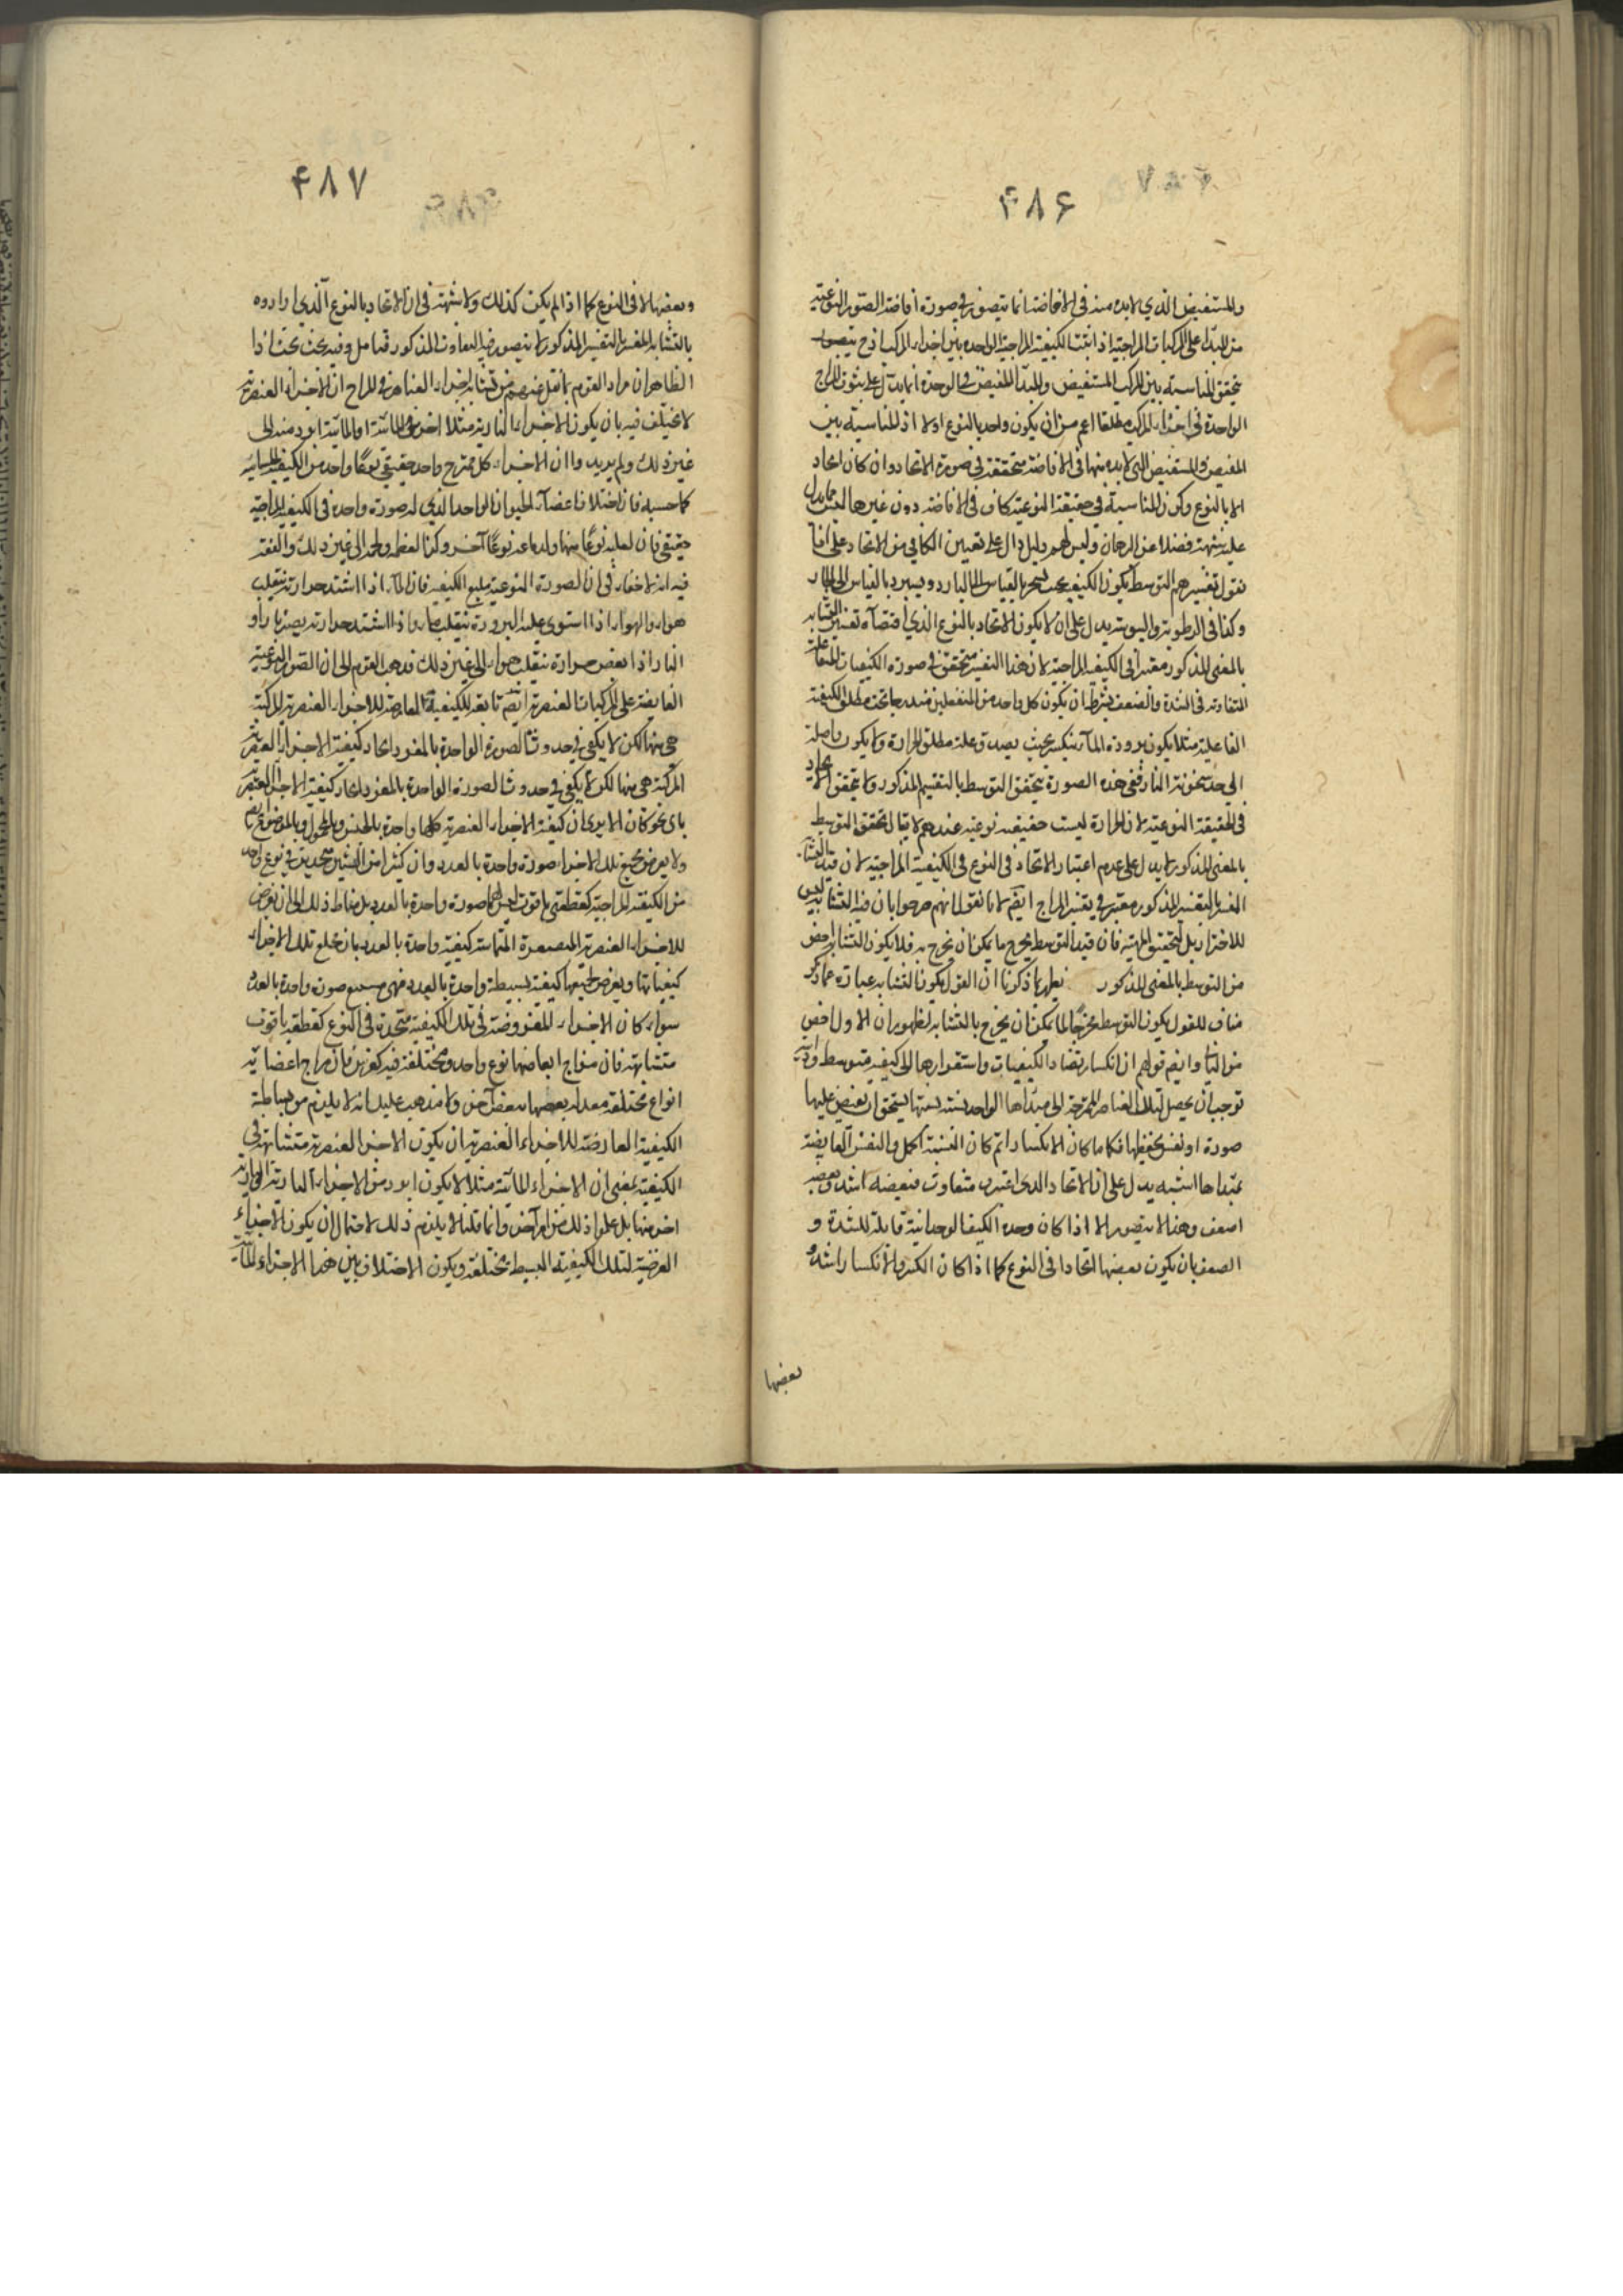 ۴۸۶
والمستفيض الذي لابد منه فى الافاضة انما يتصور فى صورة افاضة الصور النوعية
من المبدأ على المركبات المزاجية اذ اثبت الكيفية المزاجية الواحدة بين اجزاء المركب اذ ح يتصور
تحقق المناسبة بين المركب المستفيض والمبدأ المفيض فى الوحدة انما يدل على ثبوت المزاج
الواحدة فى اجزاء المركب مطلقا اعم من ان يكون واحد بالنوع اولا اذ المناسبة بين
المفيض والمستفيض التى لابد منها فى الافاضة متحققة فى صورة الاتحاد وان كان اتحاد
الا بالنوع وكون المناسبة فى حقيقة النوعية كاف فى الافاضة دون غيرها ليس مما يدل
عليه شبهة فضلا عن البرهان وليس لهم دليل دال على تعيين الكافى من الاتحاد على انا
نقول تفسيرهم التوسط بكون الكيفية بحيث تسخن بالقياس الى البارد ويستبرد بالقياس الى الحار
وكذا فى الرطوبة واليبوسة يدل على ان لا يكون الاتحاد بالنوع الذى اقتضاه تفسير التشابه
بالمعنى المذكور معتبرا فى الكيفية المزاجية لان هذا التفسير متحقق فى صورة الكيفيات المتفاعلة
المتفاوتة فى الشدة والضعف بشرط ان يكون كل واحدة من المنفعلين مندرجا تحت مطلق الكيفية
الفاعلة مثلا يكون برودة الماء تنكسر بحيث يصدق علته مطلق الحرارة ولا يكون واصلة
الى حد سخونة النار ففى هذه الصورة يتحقق التوسط بالتفسير المذكور ولا يتحقق الاتحاد
فى الحقيقة النوعية لان الحرارة ليست حقيقة نوعية عندهم لا يقال تحقق التوسط
بالمعنى المذكور لا يدل على عدم اعتبار الاتحاد فى النوع فى الكيفية المزاجية لان قيد التشابه
المفسر بالتفسير المذكور معتبر فى تفسير المزاج ايضم لانا نقول انهم صرحوا بان قيد التشابه ليس
للاحتراز بل لتحقق الماهية فان قيد التوسط يخرج ما يمكن ان يخرج به فلا يكون التشابه اخص
من التوسط بالمعنى المذكور فظهر بما ذكرنا ان القول بكون التشابه عبارة عما ذكر
مناف للقول بكون التوسط مخرجا لما يمكن ان يخرج بالتشابه لظهور ان الاول اخص
من الثانى وايضم قولهم ان انكسار تضاد الكيفيات واستقرارها الى كيفية متوسطة وحدانية
توجب ان يحصل لتلك العناصر الممتزجة الى مبدأها الواحد نسبة بسببها يستحق ان يفيض عليها
صورة او نفس يحفظها فكلما كان الانكسار اتم كان النسبة اكمل والنفس الفايضة
بمبدأها اشبه يدل على ان الاتحاد الذى اعتبروه متفاوت فبعضه اشد وبعضه
اضعف وهذا لا يتصور الا اذا كان وحدة الكيف الوحدانية قابلة للشدة و
الضعف بان يكون بعضها اتحادا فى النوع كما اذا كان الكسر والانكسار اشد و
بعضها
۴۸۷
وبعضها لا فى النوع كما اذا لم يكن كذلك ولا شبهة فى ان الاتحاد بالنوع الذي ارادوه
بالتشابه المفسر بالتفسير المذكور لا يتصور فيه التفاوت المذكور فتأمل وفيه بحث بحث اذا
الظاهر ان مراد القوم بما نقل عنهم من تشابه اجزاء العناصر فى المزاج ان الاجزاء العنصرية
لا تختلف فيه بان يكون الاجزاء النارية مثلا احر من المائية او المائية ابرد منه الى
غير ذلك ولم يريدوا ان الاجزاء كل ممتزج واحد حقيقى نوعا واحد من الكيفية المزاجية
كما حسبه فان اختلاف اعضاء الحيوان الواحد الذي له صورة واحدة فى الكيفية المزاجية
حقيقى فان لقلبه نوعا منها ولدماغه نوعا آخر وكذا لعظمه ولحمه الى غير ذلك والفقه
فيه انه لا خفاء فى ان الصورة النوعية يتبع الكيفية فان الماء اذا اشتد حرارته ينقلب
هواء والهواء اذا استولى عليه البرودة ينقلب ماء واذا اشتد حرارته يصير نارا و
النار اذا نقص حرارته ينقلب هواء الى غير ذلك فذهب القوم الى ان الصور النوعية
الفايضة على المركبات العنصرية ايضم تابعة للكيفية العارضة للاجزاء العنصرية المركبة
هى منها لكن لا يكفى فى حدوث الصورة الواحدة بالمفرد اتحاد كيفية الاجزاء العنصرية
المركبة هى منها لكن لا يكفى فى حدوث الصورة الواحدة بالمفرد اتحاد كيفية الاجزاء العنصرية
باى نحو كان الا يرى ان كيفية الاجزاء العنصرية كلها واحدة بالجنس وبالمحمول وبالموضوع
ولا يعرض بجميع تلك الاجزاء صورة واحدة بالعدد وان كثيرا من الشيئين متحدين فى نوع واحد
من الكيفية المزاجية كقطعتى ياقوت ليس لهما صورة واحدة بالعدد بل مناط ذلك الى ان يعرض
للاجزاء العنصرية المتصغرة المتماسة كيفية واحدة بالعدد بان يخلع تلك الاجزاء
كيفياتها ويعرض لجميعها كيفية بسيطة واحدة بالعدد فهى يستتبع صورة واحدة بالعدد
سواء كان الاجزاء المفروضة فى تلك الكيفية متحدة فى النوع كقطعة ياقوت
متشابهة فان مزاج ابعاضها نوع واحد ومختلفة فيه كفرس فان مزاج اعضائه
انواع مختلفة معدله بعضها ببعض آخر ولا مذهب عليك انه لا يلزم من بساطة
الكيفية العارضة للاجزاء العنصرية ان يكون الاجزاء العنصرية متشابهة فى
الكيفية بمعنى ان الاجزاء المائية مثلا لا يكون ابرد من الاجزاء النارية النارية
احر منها بل علموا ذلك من امر آخر وانما قلنا لا يلزم ذلك لاحتمال ان يكون الاجزاء
الفرضية لتلك الكيفية البسيطة مختلفة ويكون الاختلاف بين هذا الاجزاء المائية